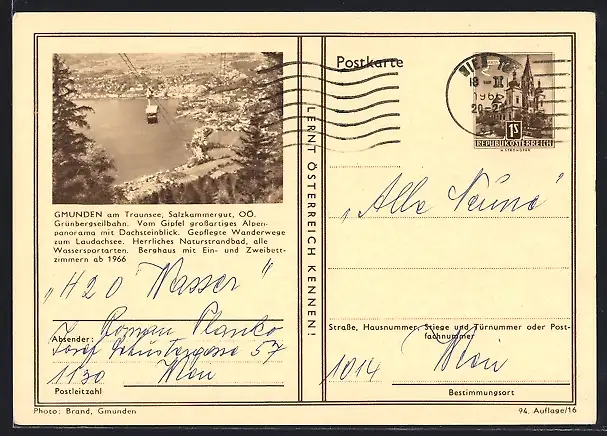 Postkarte
WIEN
18-II
1966
20-2
1S
REPUBLIK ÖSTERREICH
LERNT ÖSTERREICH KENNEN!
GMUNDEN am Traunsee, Salzkammergut, OÖ.
Grünbergseilbahn. Vom Gipfel großartiges Alpen-
panorama mit Dachsteinblick. Gepflegte Wanderwege
zum Laudachsee. Herrliches Naturstrandbad, alle
Wassersportarten. Berghaus mit Ein- und Zweibett-
zimmern ab 1966
„H2O Wasser"
Absender: Roman Planko
Josef Schustergasse 57
1130 Wien
Postleitzahl
„Alle Neune"
Straße, Hausnummer, Stiege und Türnummer oder Post-
fachnummer
1014 Wien
Bestimmungsort
Photo: Brand, Gmunden
94. Auflage/16